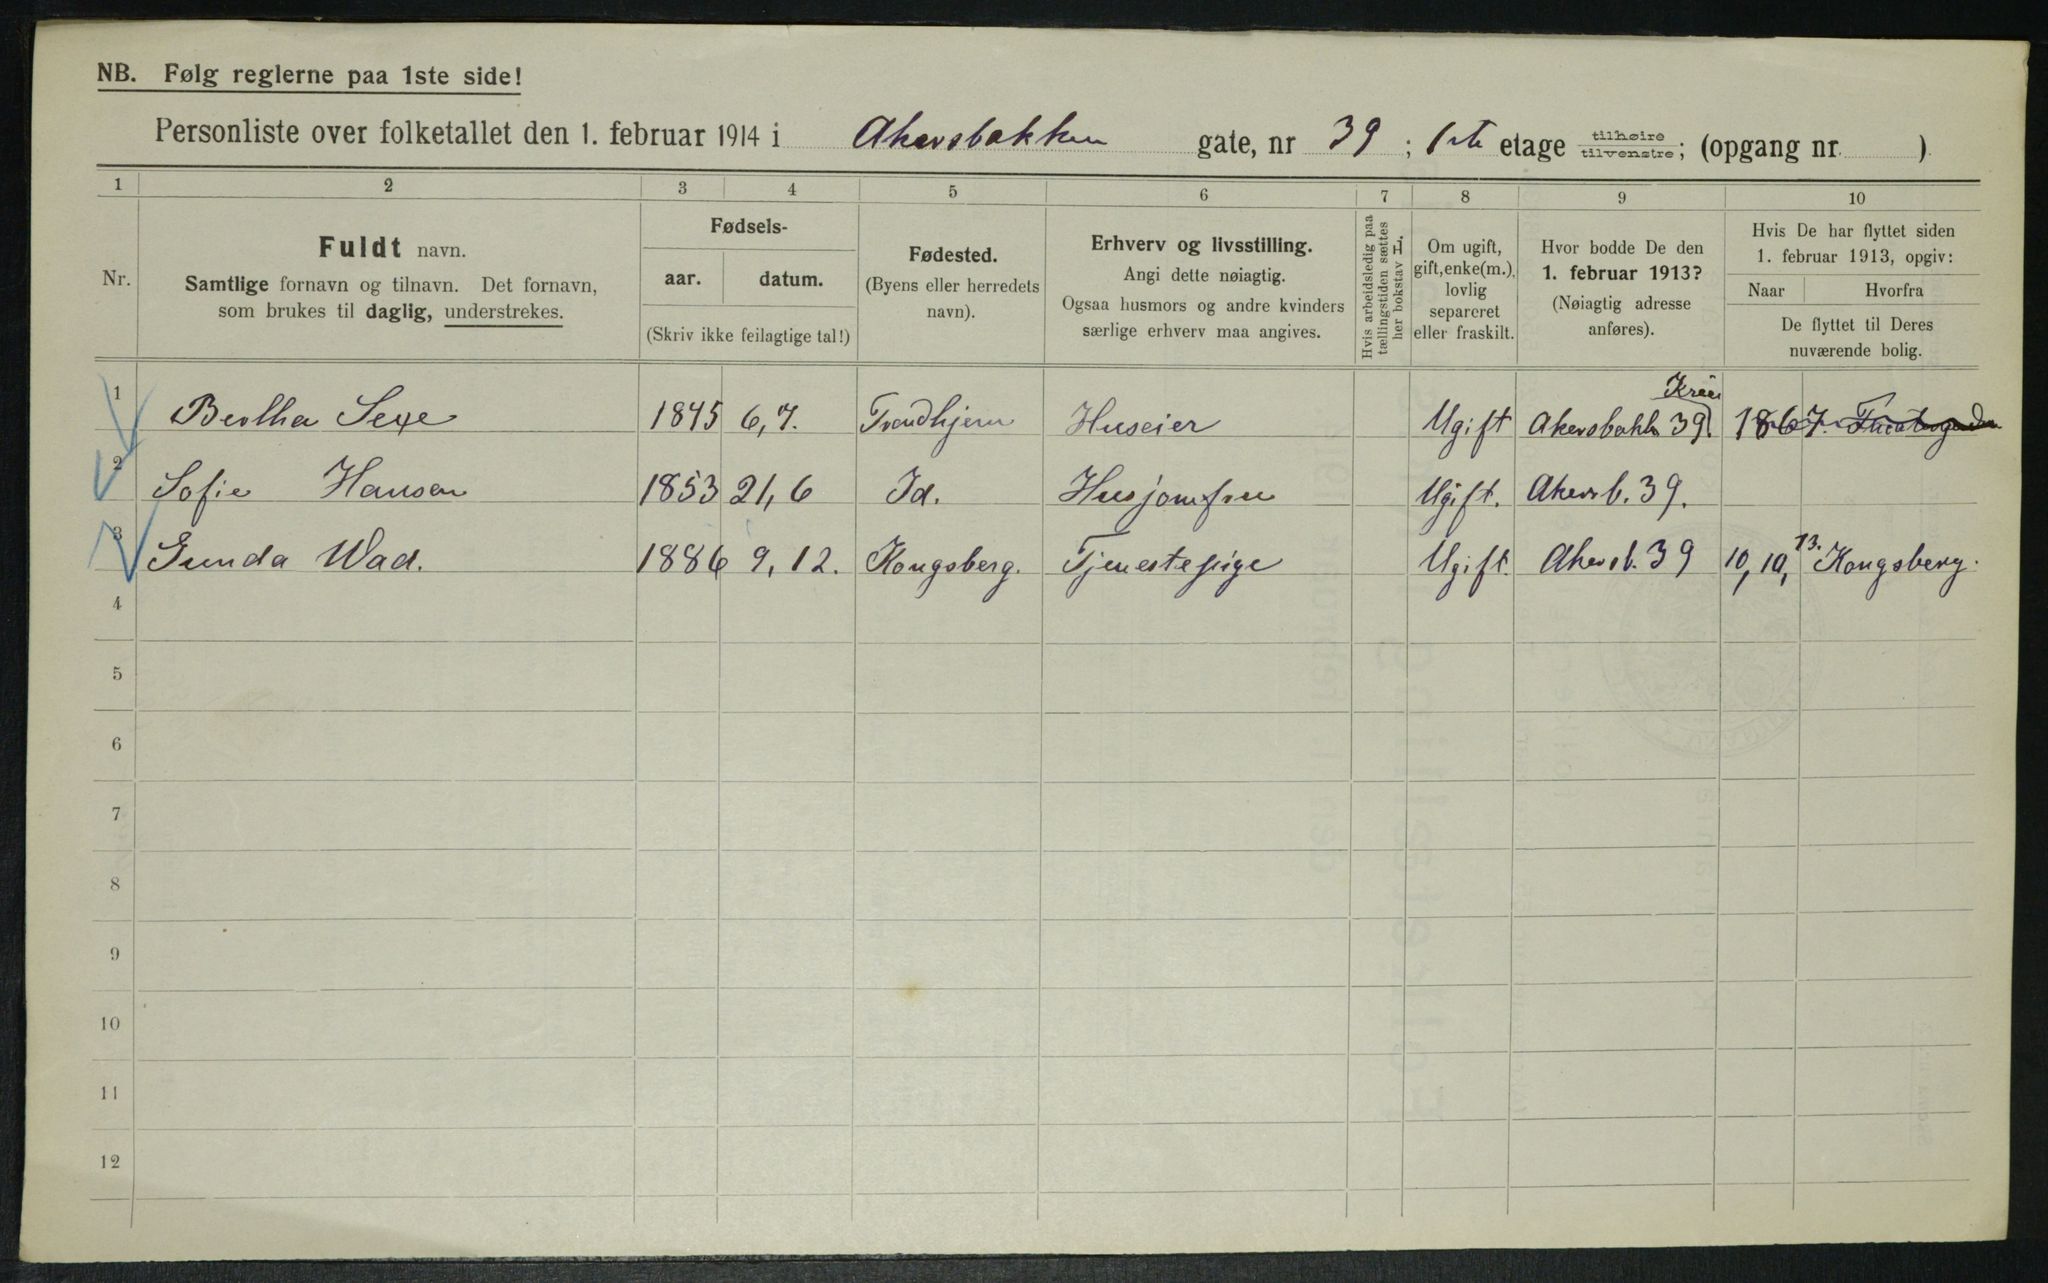 NB. Følg reglerne paa 1ste side!
Personliste over folketallet den 1. februar 1914 i Akersbakken gate, nr 39; 1ste etage tilhøire tilvenstre; (opgang nr )
1 2 3 4 5 6 7 8 9 10
Nr.
Fuldt navn.
Samtlige fornavn og tilnavn. Det fornavn,
som brukes til daglig, understrekes.
Fødsels-
aar. datum.
(Skriv ikke feilagtige tal!)
Fødested.
(Byens eller herredets
navn).
Erhverv og livsstilling.
Angi dette nøiagtig.
Ogsaa husmors og andre kvinders
særlige erhverv maa angives.
Hvis arbeidsledig paa
tællingstiden sættes
her bokstav L.
Om ugift,
gift, enke(m.),
lovlig
separeret
eller fraskilt.
Hvor bodde De den
1. februar 1913?
(Nøiagtig adresse
anføres).
Hvis De har flyttet siden
1. februar 1913, opgiv:
Naar Hvorfra
De flyttet til Deres
nuværende bolig.
1 Bertha Sexe 1845 6,7. Trondhjem Huseier Ugift Akersbakk 39. 1867.
2 Sofie Hansen 1853 21,6 Id. Husjomfru Ugift. Akersb. 39.
3 Gunda Wad. 1886 9,12. Kongsberg. Tjenestepige Ugift. Akersb. 39 10,10,13. Kongsberg.
4
5
6
7
8
9
10
11
12